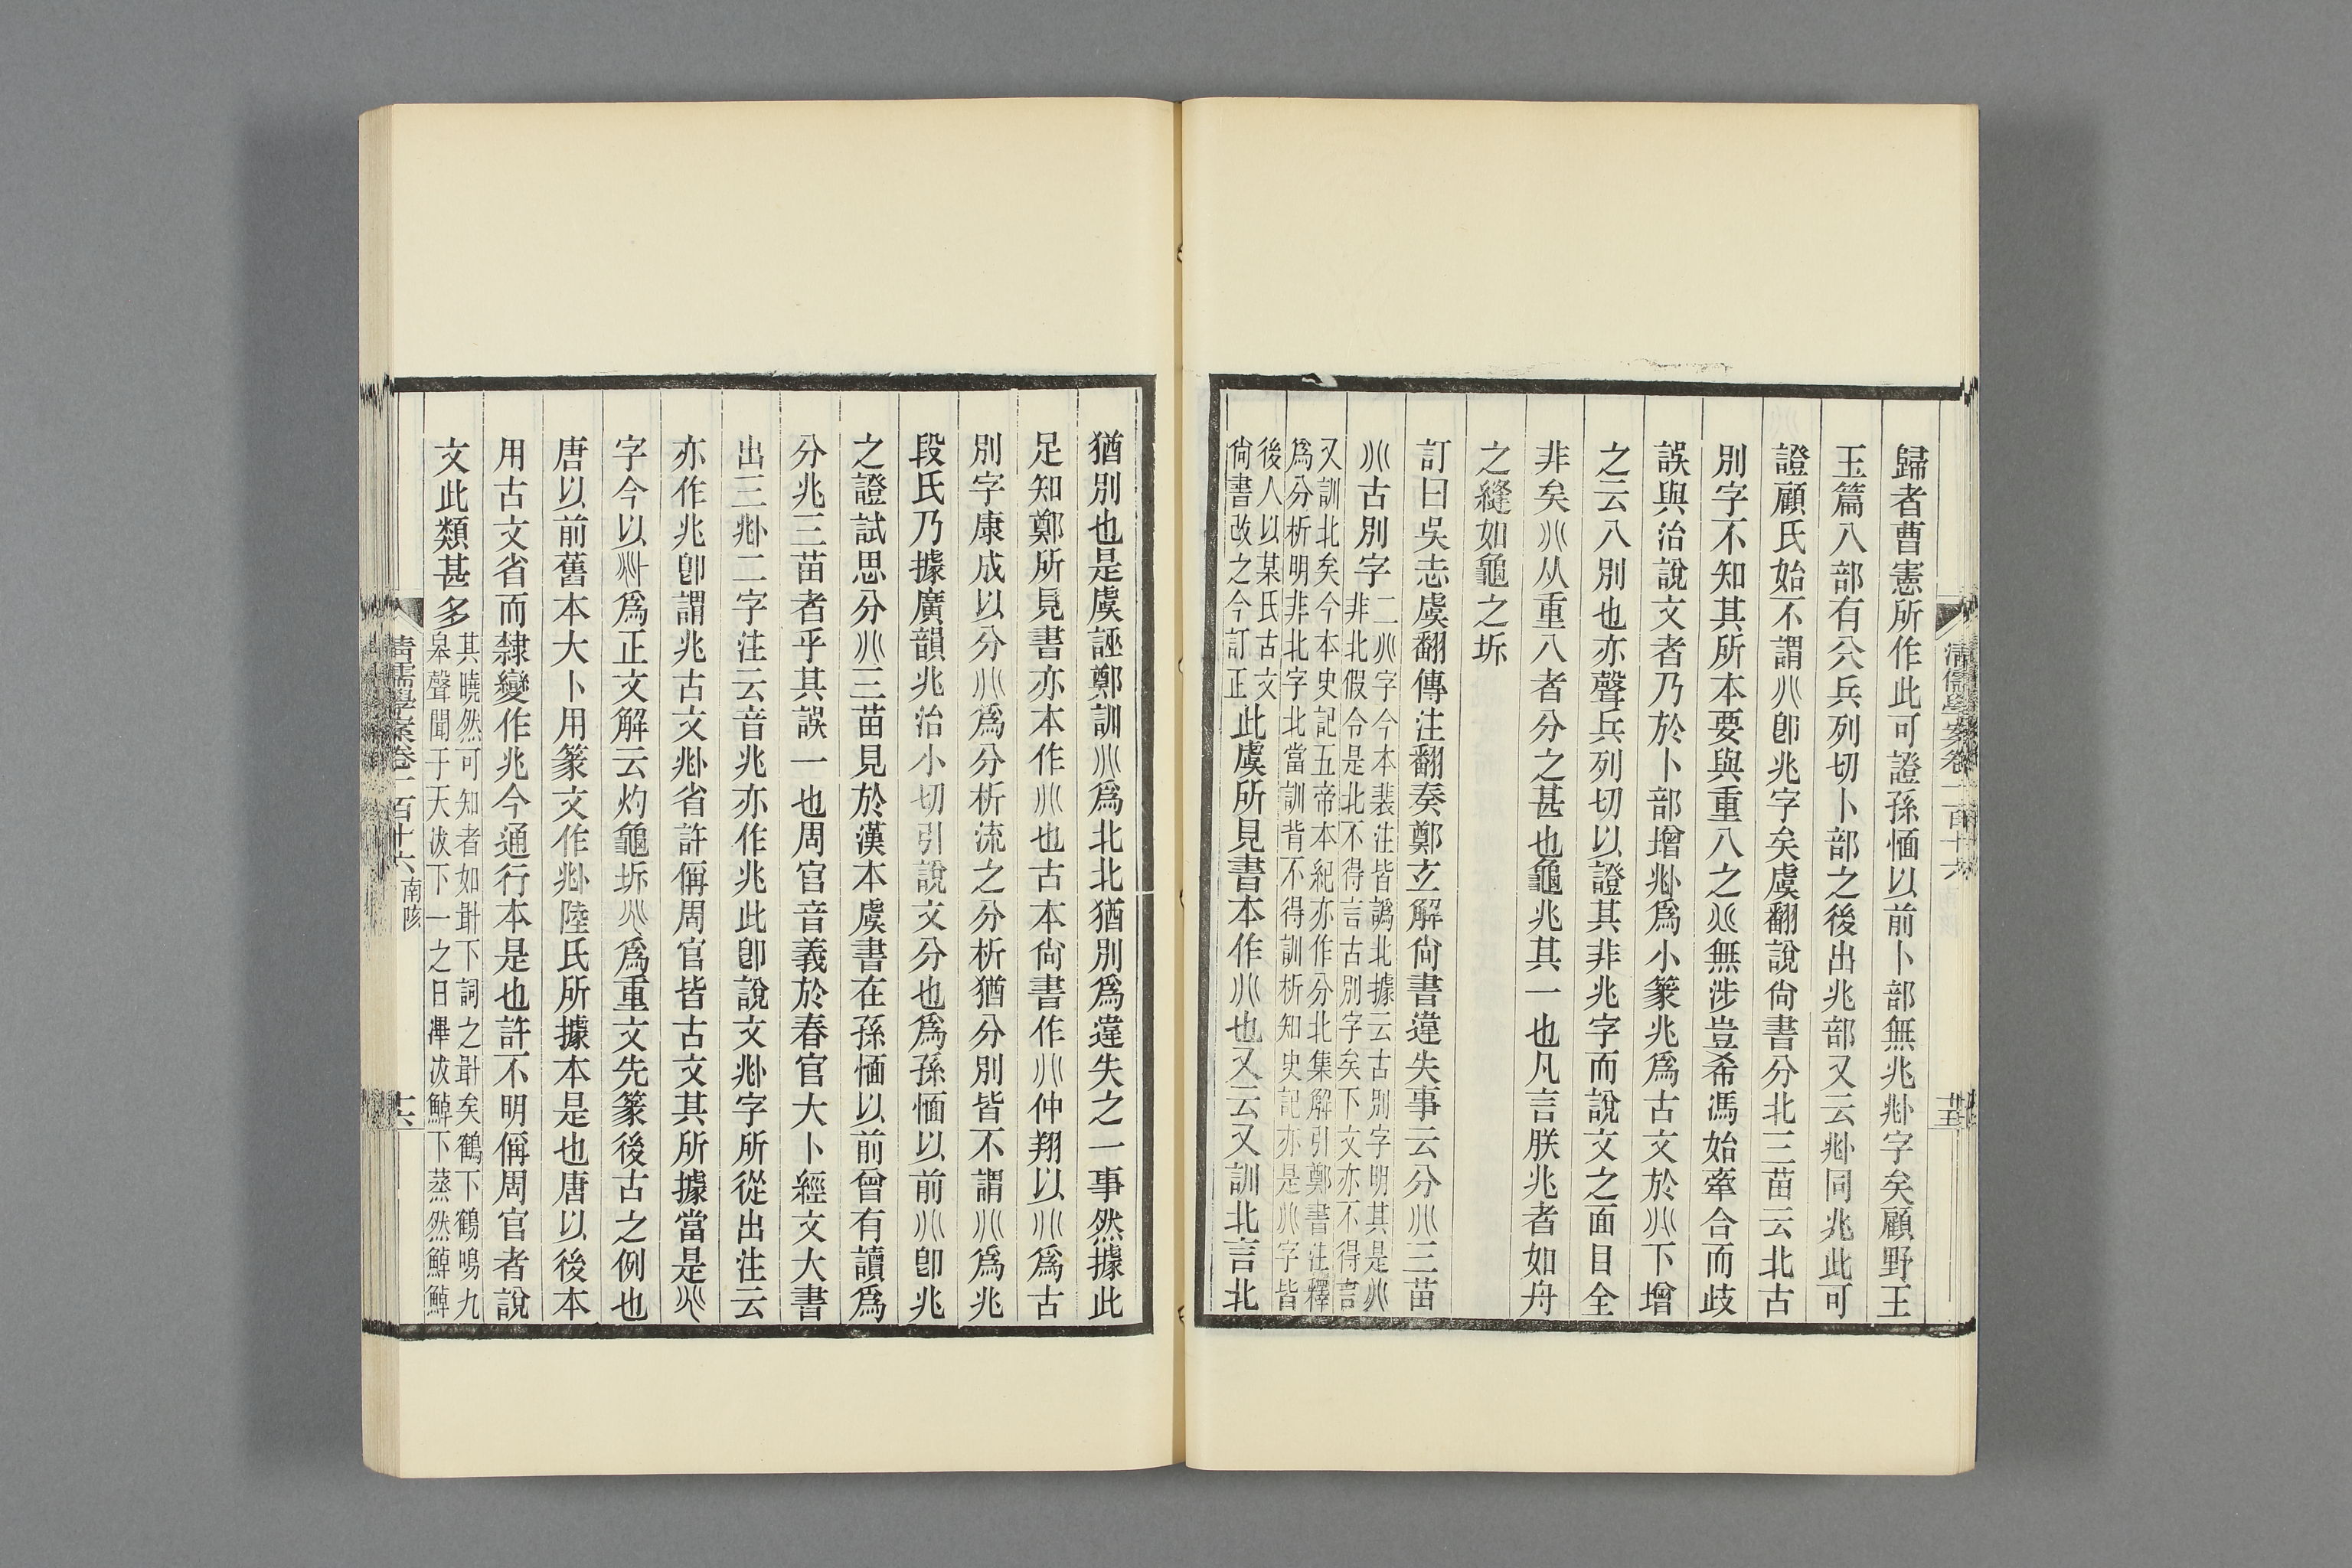 歸者曹憲所作此可證孫愐以前卜部無兆𠧞字矣顧野王
玉篇八部有㕣兵列切卜部之後出兆部又云𠧞同兆此可
證顧氏始不謂𠔁卽兆字矣虞翻說尙書分北三苗云北古
別字不知其所本要與重八之𠔁無涉豈希馮始牽合而歧
誤與治說文者乃於卜部增𠧞爲小篆兆爲古文於𠔁下增
之云八別也亦聲兵列切以證其非兆字而說文之面目全
非矣𠔁从重八者分之甚也龜兆其一也凡言朕兆者如舟
之縫如龜之坼
訂曰吳志虞翻傳注翻奏鄭玄解尙書違失事云分𠔁三苗
𠔁古別字二𠔁字今本裴注皆譌北據云古別字明其是𠔁
非北假令是北不得言古別字矣下文亦不得言
又訓北矣今本史記五帝本紀亦作分北集解引鄭書注釋
爲分析明非北字北當訓背不得訓析知史記亦是𠔁字皆
後人以某氏古文
尙書改之今訂正此虞所見書本作𠔁也又云又訓北言北
清儒學案卷一百十六
廿五
猶別也是虞誣鄭訓𠔁爲北北猶別爲違失之一事然據此
足知鄭所見書亦本作𠔁也古本尙書作𠔁仲翔以𠔁爲古
別字康成以分𠔁爲分析流之分析猶分別皆不謂𠔁爲兆
段氏乃據廣韻兆治小切引說文分也爲孫愐以前𠔁卽兆
之證試思分𠔁三苗見於漢本虞書在孫愐以前曾有讀爲
分兆三苗者乎其誤一也周官音義於春官大卜經文大書
出三𠧞二字注云音兆亦作兆此卽說文𠧞字所從出注云
亦作兆卽謂兆古文𠧞省許偁周官皆古文其所據當是𠔁
字今以𠧞爲正文解云灼龜坼𠔁爲重文先篆後古之例也
唐以前舊本大卜用篆文作𠧞陸氏所據本是也唐以後本
用古文省而隸變作兆今通行本是也許不明偁周官者說
文此類甚多其曉然可知者如斝下詞之斝矣鶴下鶴鳴九
皋聲聞于天冹下一之日㓖冹鯙下蒸然鯙鯙
清儒學案卷一百十六 南陔
廿六